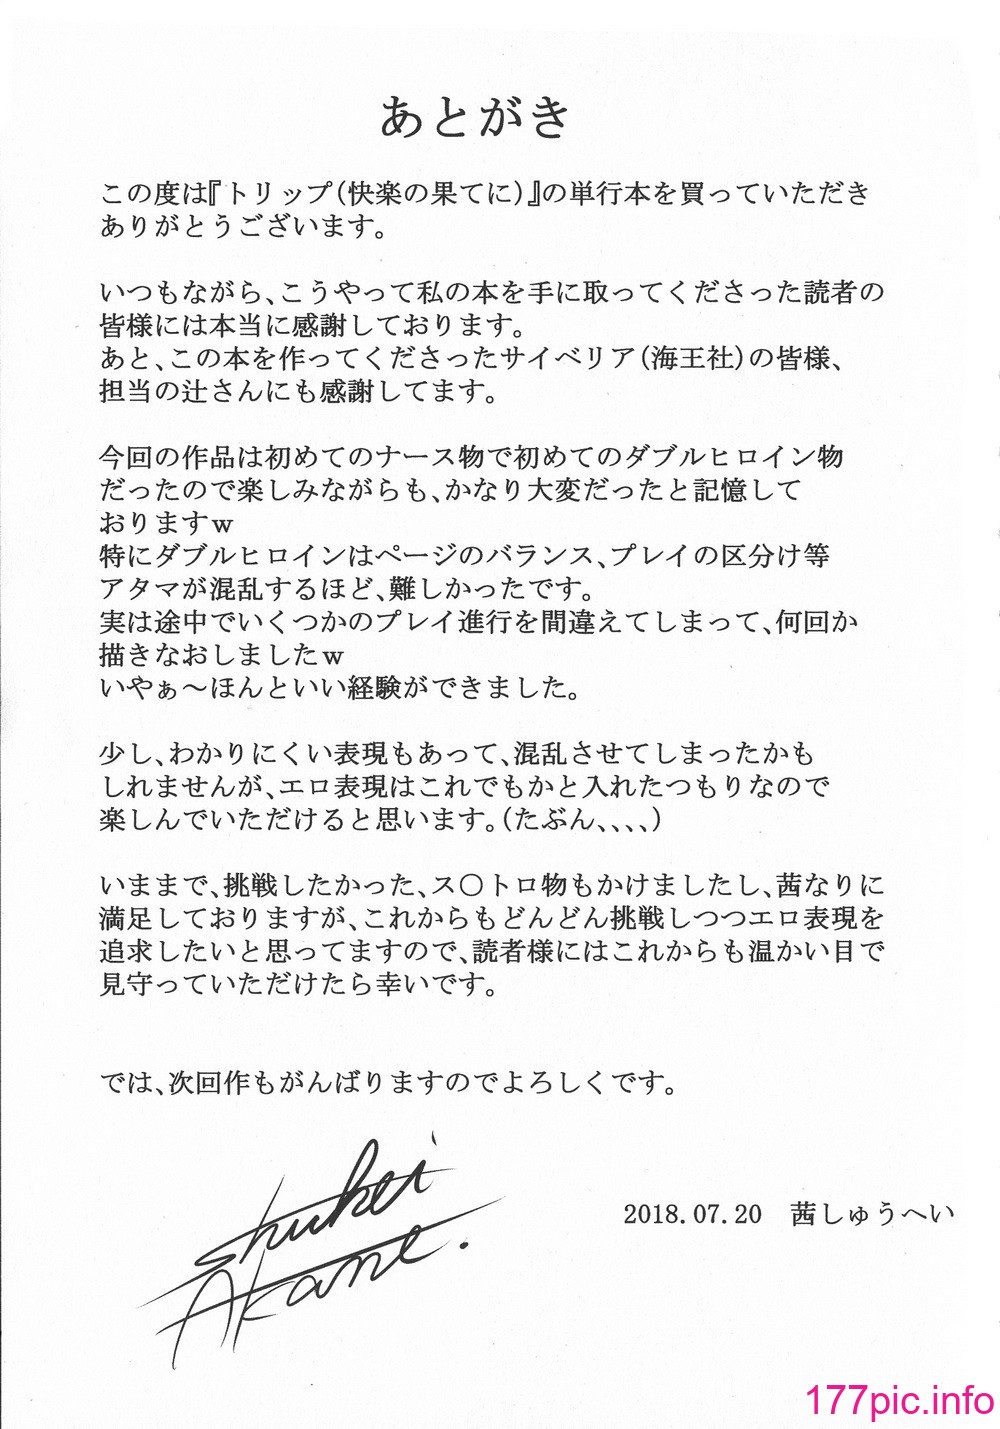 あとがき
この度は『トリップ(快楽の果てに)』の単行本を買っていただき
ありがとうございます。
いつもながら、こうやって私の本を手に取ってくださった読者の
皆様には本当に感謝しております。
あと、この本を作ってくださったサイベリア(海王社)の皆様、
担当の辻さんにも感謝してます。
今回の作品は初めてのナース物で初めてのダブルヒロイン物
だったので楽しみながらも、かなり大変だったと記憶して
おりますｗ
特にダブルヒロインはページのバランス、プレイの区分け等
アタマが混乱するほど、難しかったです。
実は途中でいくつかのプレイ進行を間違えてしまって、何回か
描きなおしましたｗ
いやぁ～ほんといい経験ができました。
少し、わかりにくい表現もあって、混乱させてしまったかも
しれませんが、エロ表現はこれでもかと入れたつもりなので
楽しんでいただけると思います。(たぶん、、、、)
いままで、挑戦したかった、ス〇トロ物もかけましたし、茜なりに
満足しておりますが、これからもどんどん挑戦しつつエロ表現を
追求したいと思ってますので、読者様にはこれからも温かい目で
見守っていただけたら幸いです。
では、次回作もがんばりますのでよろしくです。
Shuhei
Akane.
2018.07.20　茜しゅうへい
177pic.info